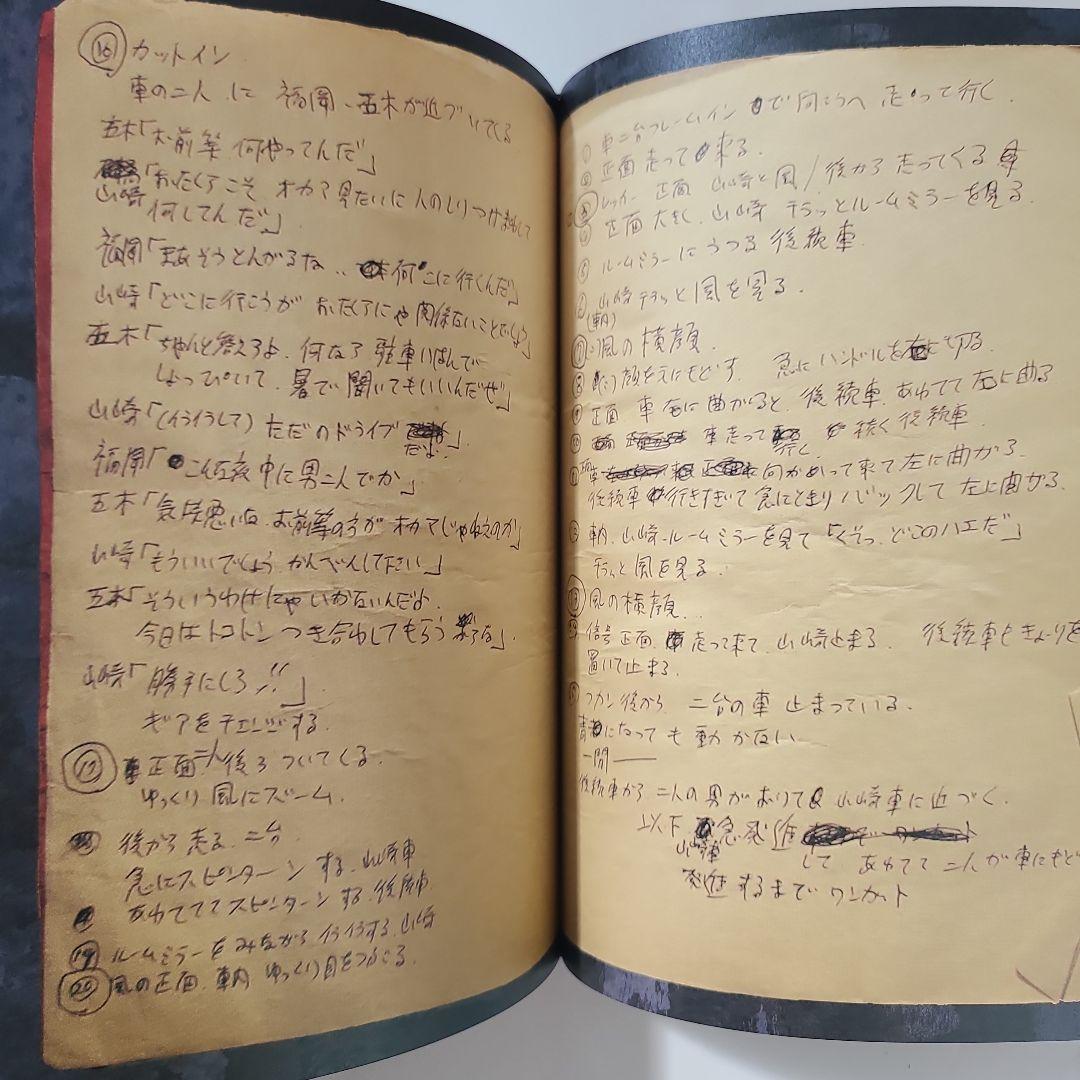 ⑯ カットイン
車の二人に 福岡、五木が近づいてくる
五木「お前等 何やってんだ」
山崎「おたくらこそ オカマ見たいに人のしりつけまわして
何してんだ」
福岡「まあそうとんがるな‥ 何処に行くんだ」
山崎「どこに行こうが おたくらにゃ関係ないことでしょう」
五木「ちゃんと答えろよ、何なら 駐車いはんで
しょっぴいて、署で聞いてもいいんだぜ」
山崎「(イライラして) ただのドライブ
だよ」
福岡「こんな夜中に男二人でか」
五木「気持悪いな お前等の方が オカマじゃねえのか」
山崎「もういいでしょう かんべんして下さい」
五木「そういうわけにゃいかないんだよ、
今日はトコトン つき合わしてもらう」
山崎「勝手にしろ!!」
ギアをチェンジする
⑰ 正面 後ろついてくる
ゆっくり 風にズーム
後から走る 二台
急にスピンターンする 山崎車
あわててスピンターンする 後続車
⑲ ルームミラーをみながらイライラする山崎
⑳ 風の正面 車内 ゆっくり目をつぶる
① 車二台フレームインで向こうへ走って行く
② 正面走って来る
③ レッカー 正面 山崎と風/後から走ってくる車
④ 正面 大きく 山崎 チラッとルームミラーを見る
⑤ ルームミラーにうつる 後続車
⑥ 山崎 チラッと風を見る
(車内)
⑦ 風の横顔
⑧ 顔を元にもどす 急にハンドルを切る
⑨ 正面 車 左に曲がると、後続車 あわてて左に曲る
⑩ 車走って行く 続く後続車
⑪ 向かって来て左に曲がる
後続車 行きすぎて急に止まりバックして左に曲がる
⑫ 車内 山崎 ルームミラーを見て「くそっ どこのハエだ」
チラッと風を見る
⑬ 風の横顔
⑭ 信号 正面 走って来て 山崎止まる 後続車もきょりを
置いて止まる
⑮ フカン 後から 二台の車 止まっている
青になっても動かない
一間――
後続車から 二人の男がおりて 山崎車に近づく
以下 急発進
山崎車
して あわてて二人が車にもど
発進するまでワンカット